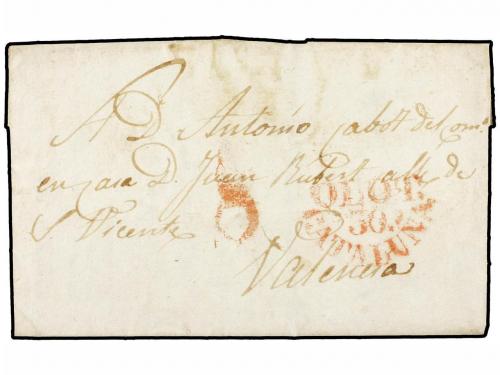 A D. Antonio Cabot del Come.
en casa D. Juan Rubert calle de
S. Vicente
OLOT
30.
CATALUÑA
Valencia